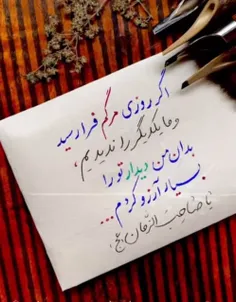 اگر روزی مرگم فرا رسید
و ما یکدیگر را ندیدیم،
بدان من دیدار تو را
بسیار آرزو کردم ...
یا صاحِبَ الزَّمان (عج)